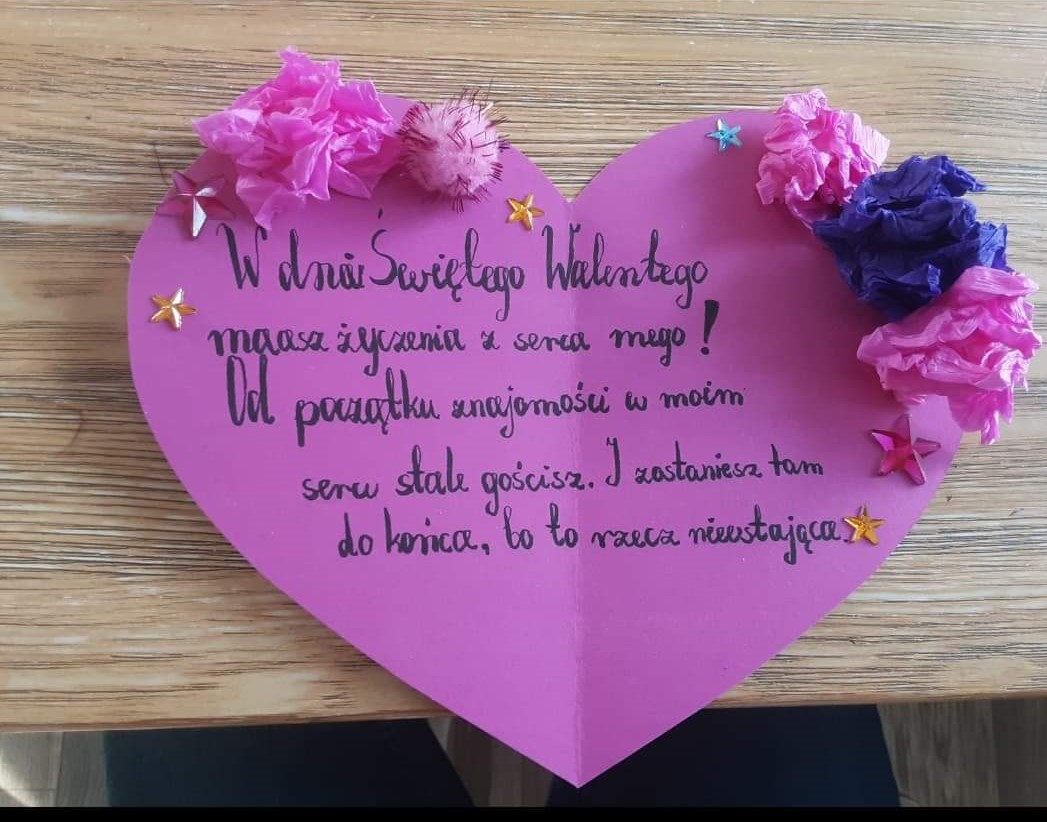 W dniu Świętego Walentego
masz życzenia z serca mego!
Od początku znajomości w moim
sercu stale gościsz. I zostaniesz tam
do końca, bo to rzecz nieustająca.